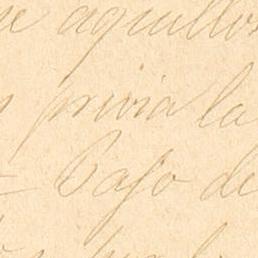 e aquillos
privia la
- Bajo de